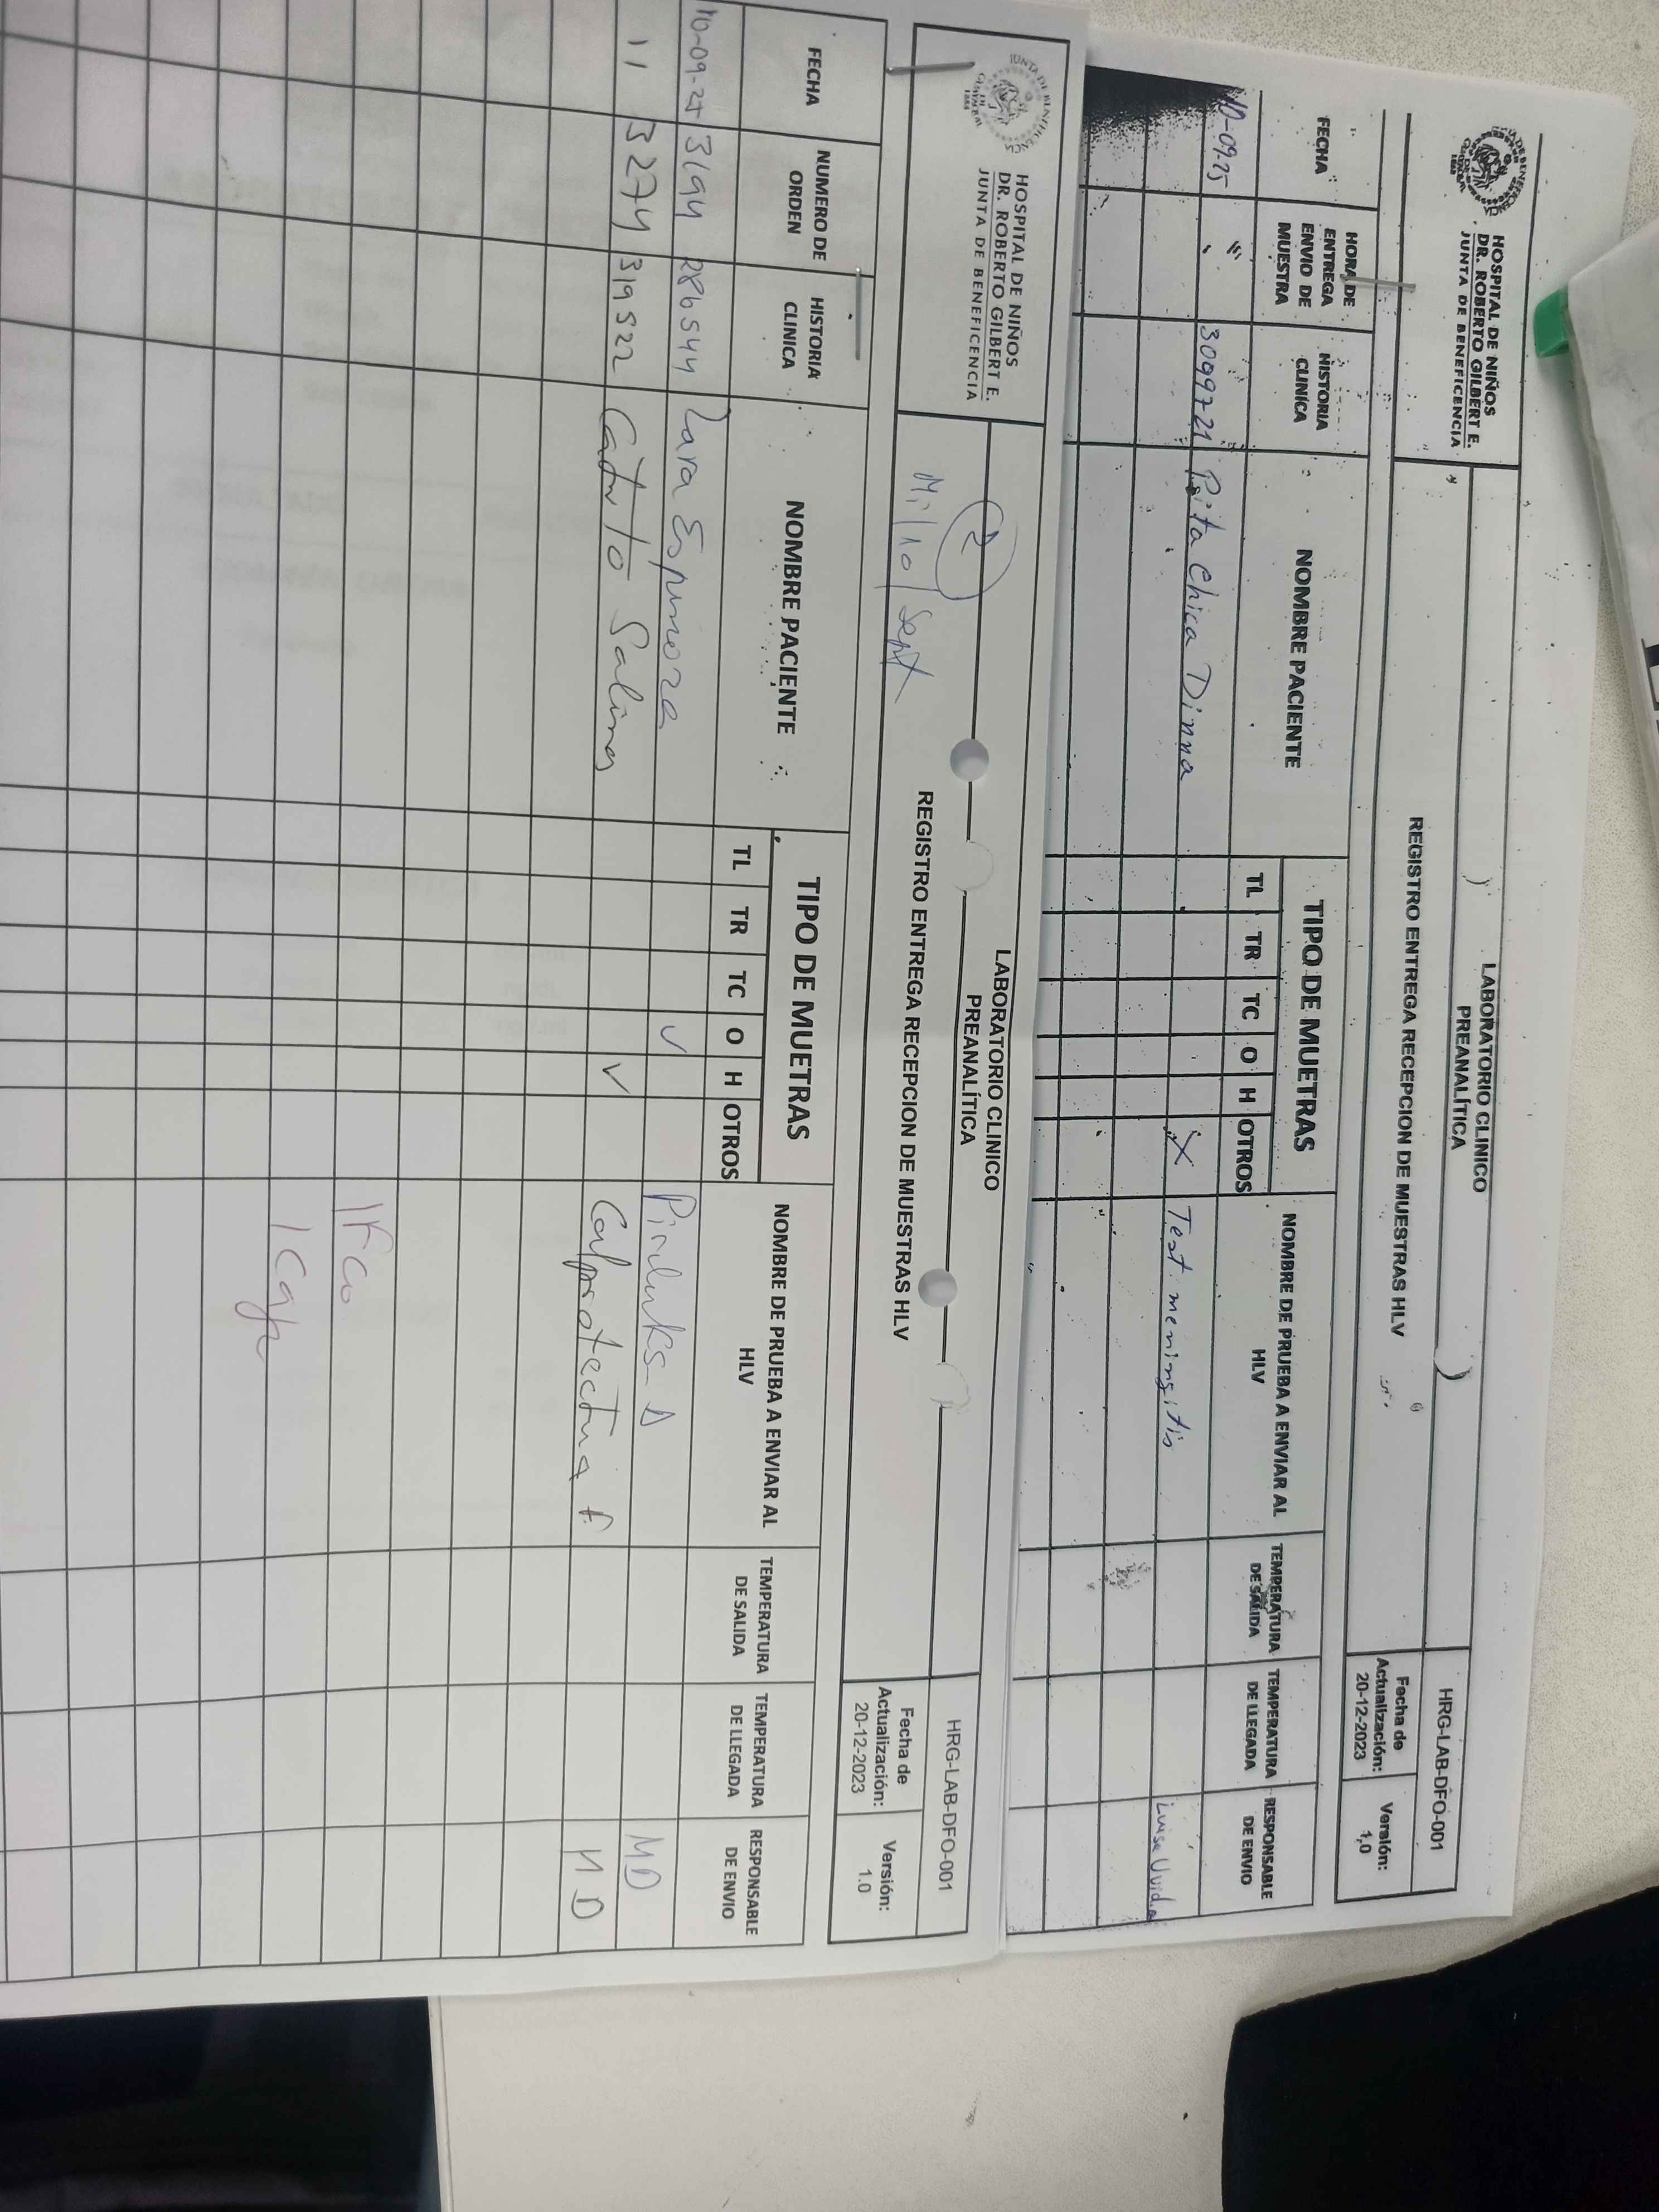 HOSPITAL DE NIÑOS
DR. ROBERTO GILBERT E.
JUNTA DE BENEFICENCIA
LABORATORIO CLINICO
PREANALÍTICA
HRG-LAB-DFO-001
REGISTRO ENTREGA RECEPCION DE MUESTRAS HLV
Fecha de Actualización: 20-12-2023
Versión: 1,0
FECHA
HORA DE ENTREGA ENVIO DE MUESTRA
HISTORIA CLINICA
NOMBRE PACIENTE
TIPO DE MUETRAS
TL TR TC O H OTROS
NOMBRE DE PRUEBA A ENVIAR AL HLV
TEMPERATURA DE SALIDA
TEMPERATURA DE LLEGADA
RESPONSABLE DE ENVIO
10-09-25 " 3099721 Pita Chica Dinna X Test meningitis Luisa Uvidia
HOSPITAL DE NIÑOS
DR. ROBERTO GILBERT E.
JUNTA DE BENEFICENCIA
LABORATORIO CLINICO
PREANALÍTICA
HRG-LAB-DFO-001
2
Mi/10/Sept
REGISTRO ENTREGA RECEPCION DE MUESTRAS HLV
Fecha de Actualización: 20-12-2023
Versión: 1.0
FECHA
NUMERO DE ORDEN
HISTORIA CLINICA
NOMBRE PACIENTE
TIPO DE MUETRAS
TL TR TC O H OTROS
NOMBRE DE PRUEBA A ENVIAR AL HLV
TEMPERATURA DE SALIDA
TEMPERATURA DE LLEGADA
RESPONSABLE DE ENVIO
10-09-25 3194 286544 Lara Espinoza ✓ MD
11 3274 319522 Salinas ✓ Calprotectina f. MD